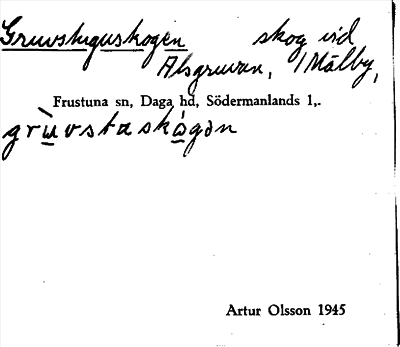 Gruvstuguskogen skog vid
Alsgruvan, /Mälby,
Frustuna sn, Daga hd, Södermanlands l,.
grùvstaskó̀gən
Artur Olsson 1945